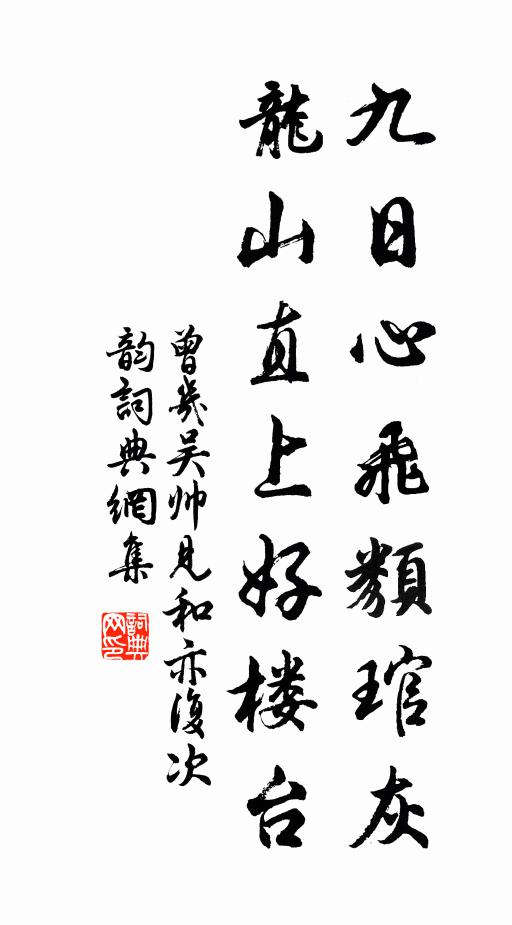 九日心飛類琯灰
龍山直上好楼台
曾幾吴帅見和亦復次
韵詞典網集
詞典网印